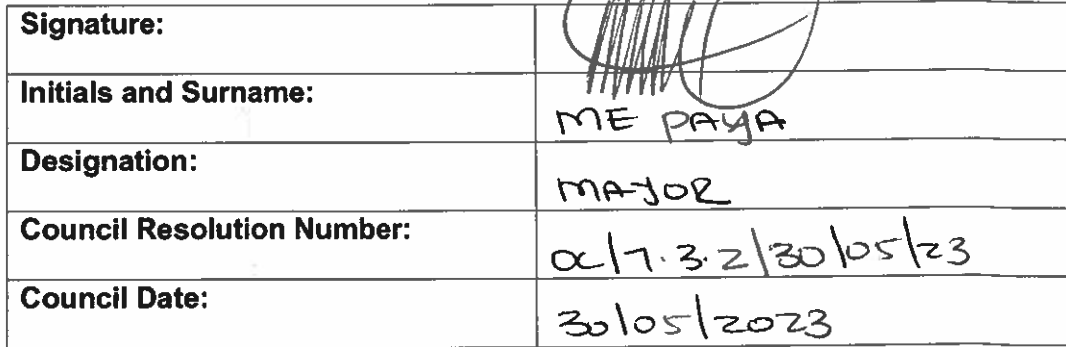 Signature:
Initials and Surname: ME PAYA
Designation: MAYOR
Council Resolution Number: OC/7.3.2/30/05/23
Council Date: 30/05/2023